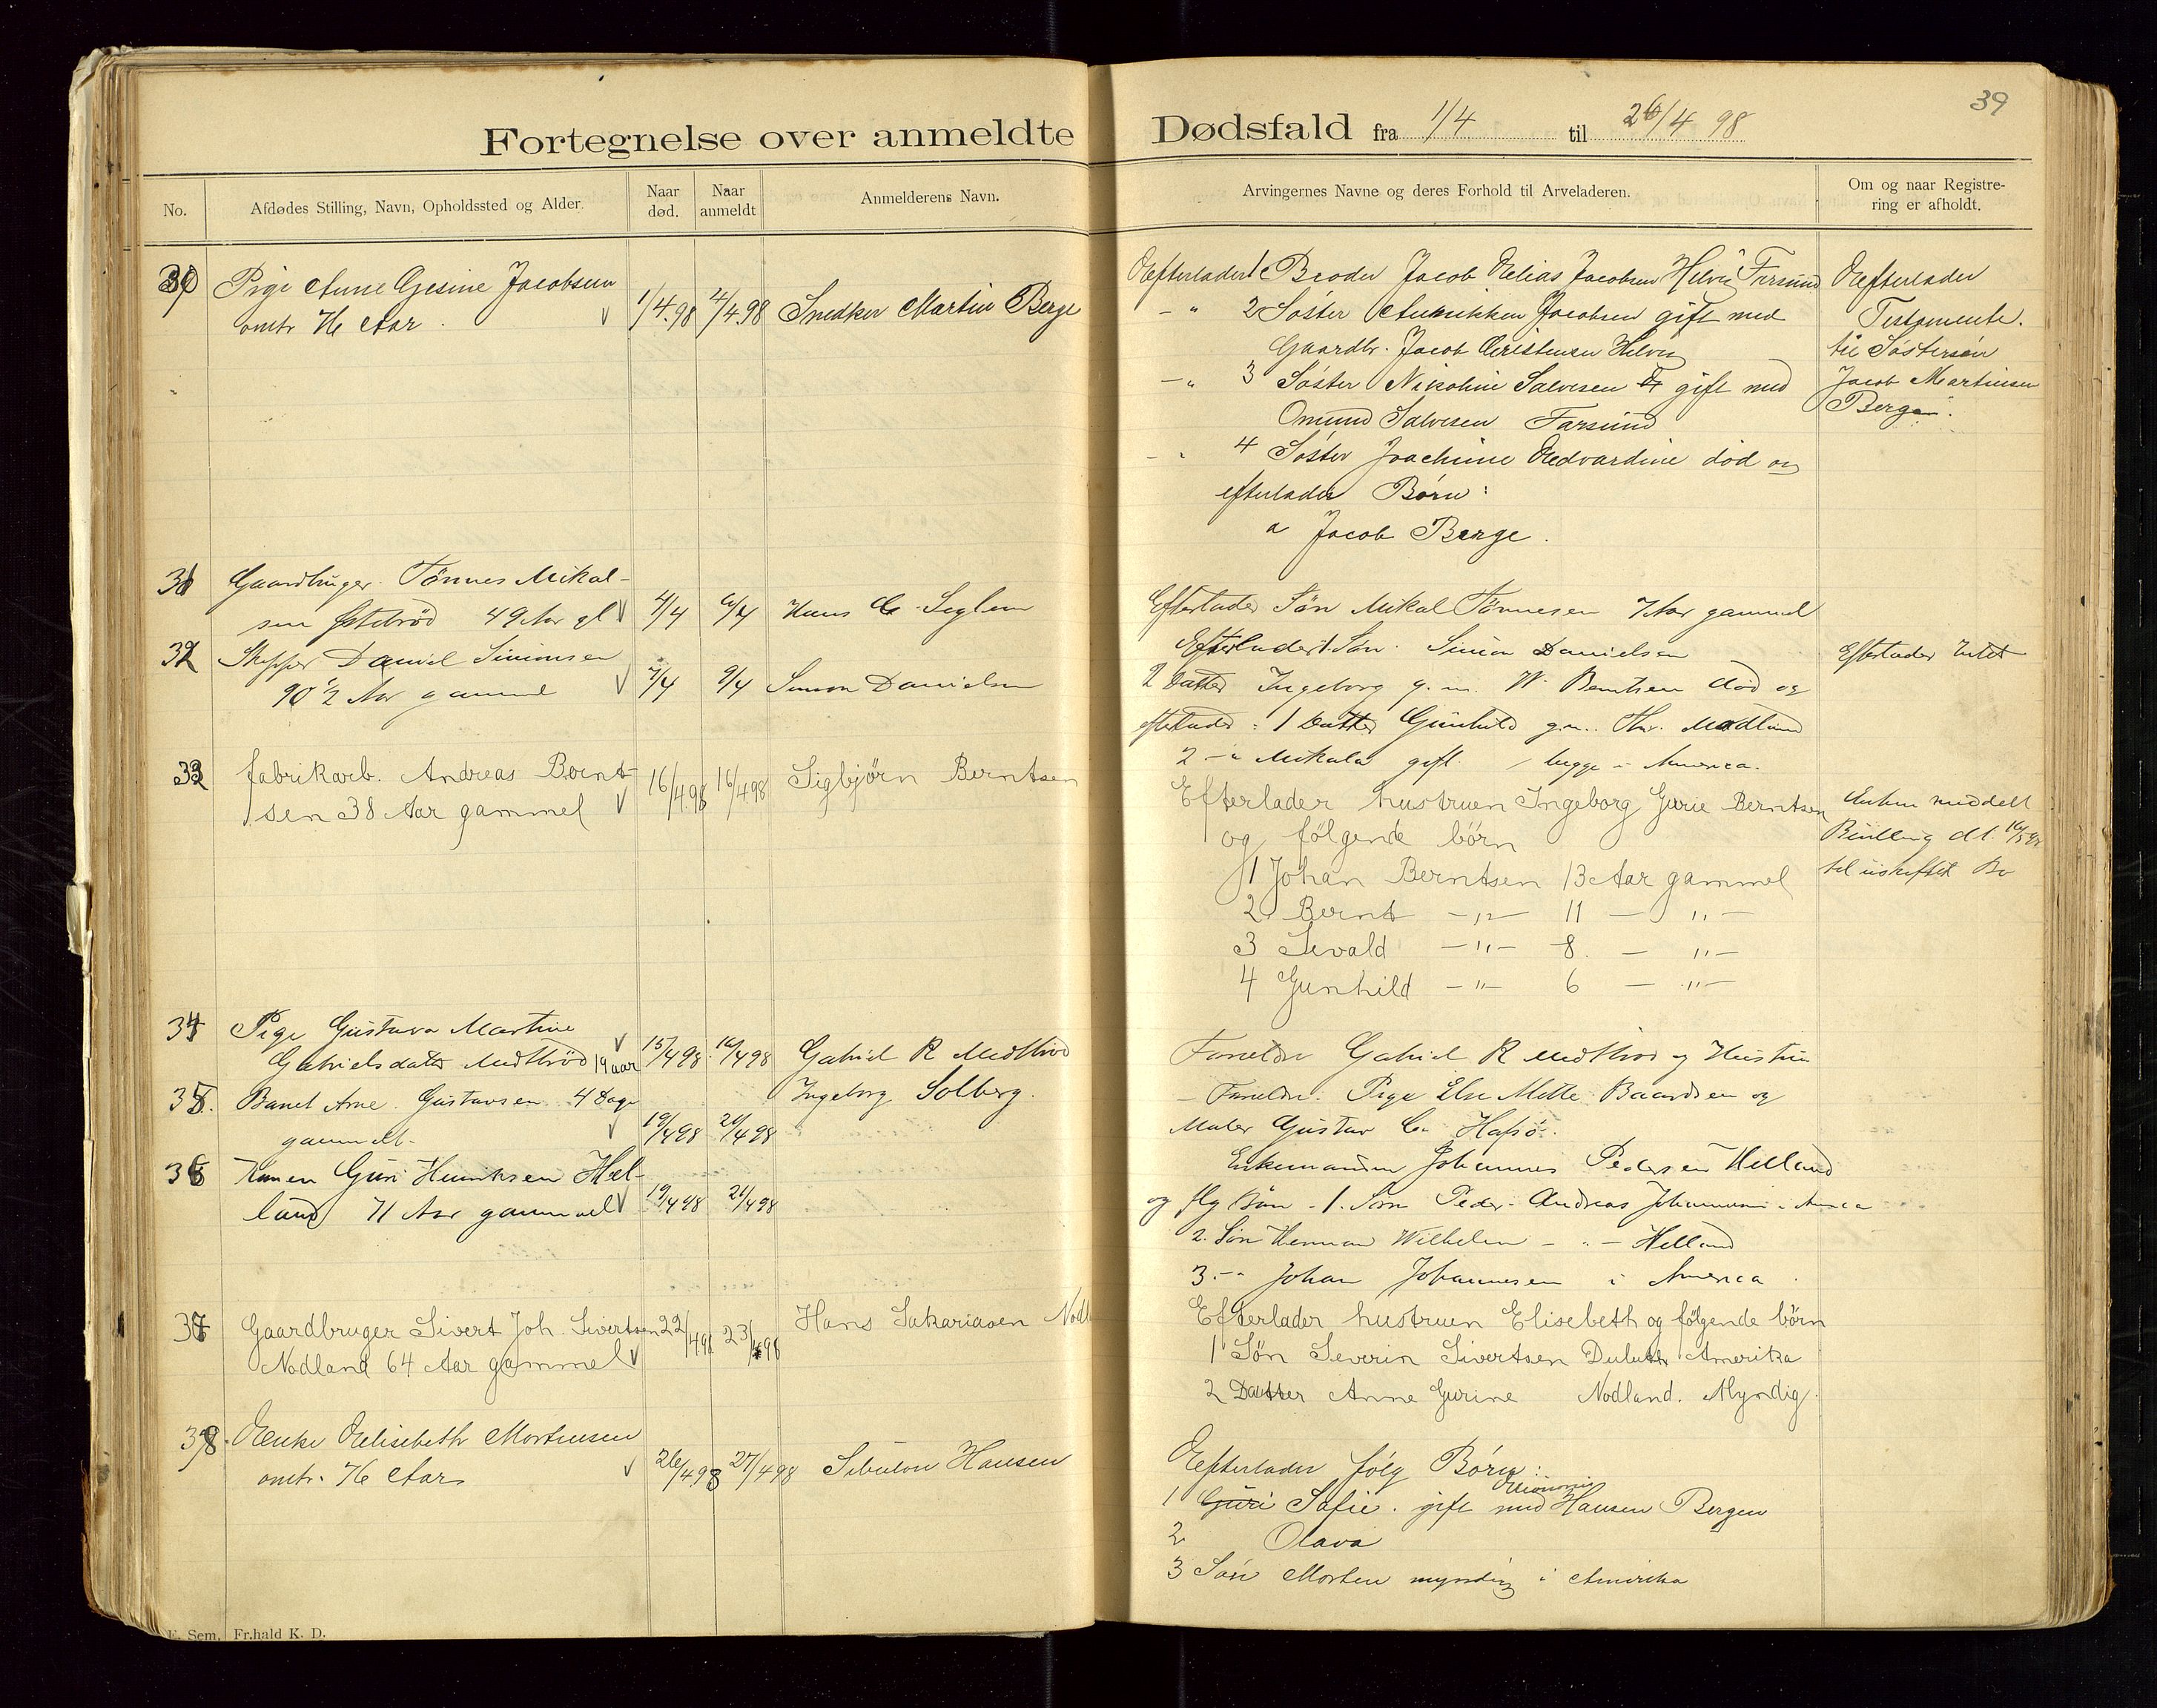 39
Fortegnelse over anmeldte Dødsfald fra 1/4 til 26/4 98
No.
Afdødes Stilling, Navn, Opholdssted og Alder.
Naar død.
Naar anmeldt
Anmelderens Navn.
Arvingernes Navne og deres Forhold til Arveladeren.
Om og naar Registrering er afholdt.
30 Pige Anne Gesine Jacobsen
omtr 76 Aar 1/4.98 4/4.98 Snedker Martin Berge
Efterlader 1 Broder Jacob Elias Jacobsen Helvig Farsund
-"- 2 Søster Annikken Jacobsen gift med
Gaardbr. Jacob Christensen Helvig
-"- 3 Søster Nikoline Salvesen gift med
Omund Salvesen Farsund
-"- 4 Søster Joachine Edvardine død og
efterlader Børn:
a Jacob Berge.
Efterlader
Testamente.
til Søstersøn
Jacob Martinsen
Berge.
31 Gaardbruger Tönnes Mikal-
sen 49 Aar gl 4/4 6/4 Hans Seglem
Efterlader Sön Mikal Tönnesen 7 Aar gammel
32 Skipper Daniel Simonsen
90 1/2 Aar gammel 7/4 9/4 Simon Danielsen
Efterlader 1 Søn Simon Danielsen
2 Datter Ingeborg g. m. W. Berntsen död og
efterlader: 1 Datter Gunhild g.m. Thr. Mødland
2 -"- Mikala gift / begge i America.
Efterlader Intet
33 fabrikarb. Andreas Bernt-
sen 38 Aar gammel 16/4.98 16/4 98 Sigbjørn Berntsen
Efterlader hustruen Ingeborg Gurie Berntsen
og følgende børn
1 Johan Berntsen 13 Aar gammel
2 Bernt -"- 11 - "-
3 Sevald -"- 8. - "-
4 Gunhild -"- 6 - "-
Enken meddelt
Bevilling dt. 16/5 98
til uskiftet Bo
34 Pige Gustava Martine
Gabrielsdatter Midtbrød 19 aar 15/4 98 16/4 98 Gabriel R Midtbrød
Forældre Gabriel R Midtbrød og Hustru
35. Barnet Arne Gustavsen 4 Dage
gammelt. 19/4 98 20/4 98 Ingeborg Solberg.
- Forældre. Pige Else Mette Baardsen og
Maler Gustav C. Hafsö.
36 Konen Guri Henriksen Hel-
land 71 Aar gammel 19/4 98 21/4 98
Enkemanden Johannes Pedersen Helland
og flg Børn - 1. Søn Peder Andreas Johannesen i America
2. Søn Herman Wilhelm - " - Helland
3 -"- Johan Johannesen i America
37 Gaardbruger Sivert Joh. Sivertsen
Nodland 64 Aar gammel 22/4 98 23/4 98 Hans Sakariasen
Efterlader hustruen Elisebeth og følgende børn
1 Søn Severin Sivertsen Duluth Amerika
2 Datter Anne Gurine Nodland. Myndig.
38. Enke Elisebeth Mortensen
omtr. 76 Aar 26/4.98 27/4 98 Sibulon Hansen
Efterlader følg Børn:
1 Guri Sofie. gift med Hansen Bergen
2 Olava
3 Søn Morten myndig i Amerika
E. Sem, Fr.hald K. D.